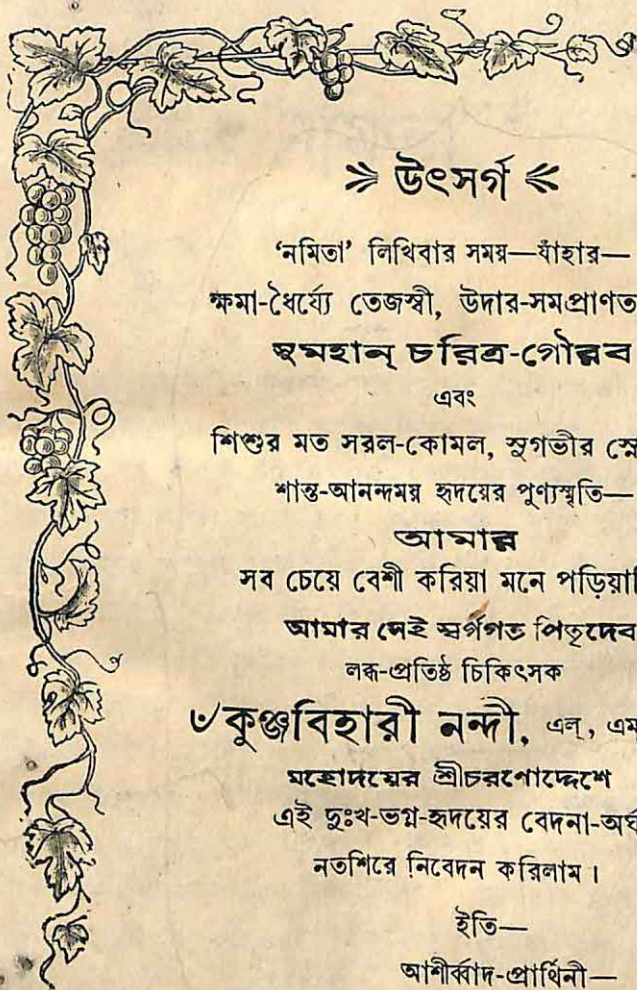 উৎসর্গ
‘নমিতা’ লিখিবার সময়—যাঁহার—
ক্ষমা-ধৈর্য্যে তেজস্বী, উদার-সমপ্রাণত
সুমহান্ চরিত্র-গৌরব
এবং
শিশুর মত সরল-কোমল, সুগভীর স্নে
শান্ত-আনন্দময় হৃদয়ের পুণ্যস্মৃতি—
আমার
সব চেয়ে বেশী করিয়া মনে পড়িয়া
আমার সেই স্বর্গগত পিতৃদেব
লব্ধ-প্রতিষ্ঠ চিকিৎসক
ঁকুঞ্জবিহারী নন্দী, এল্, এম
মহোদয়ের শ্রীচরণোদ্দেশে
এই দুঃখ-ভগ্ন-হৃদয়ের বেদনা-অর্ঘ
নতশিরে নিবেদন করিলাম।
ইতি—
আশীর্ব্বাদ-প্রার্থিনী—